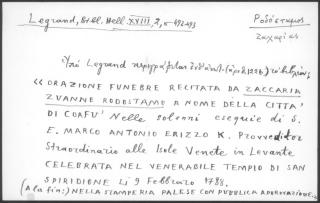 Legrand, Bibl. Hell. XXVIII, 2, σ. 492-493
Ροδόσταμος
Ζαχαρίας
Ὑπό Legrand περιγράφεται
« ORAZIONE FUNEBRE RECITATA DA ZACCARIA
ZUANNE RODOSTAMO A NOME DELLA CITTA'
DI CORFU' Nelle solenni esequie di S.
E. MARCO ANTONIO ERIZZO K. Provveditor
Straordinario alle Isole Venete in Levante
CELEBRATA NEL VENERABILE TEMPIO DI SAN
SPIRIDIONE LI 9 Febbraro 1788.
(A la fin:) NELLA STAMPERIA PALESE CON PUBBLICA APPROVAZIONE.